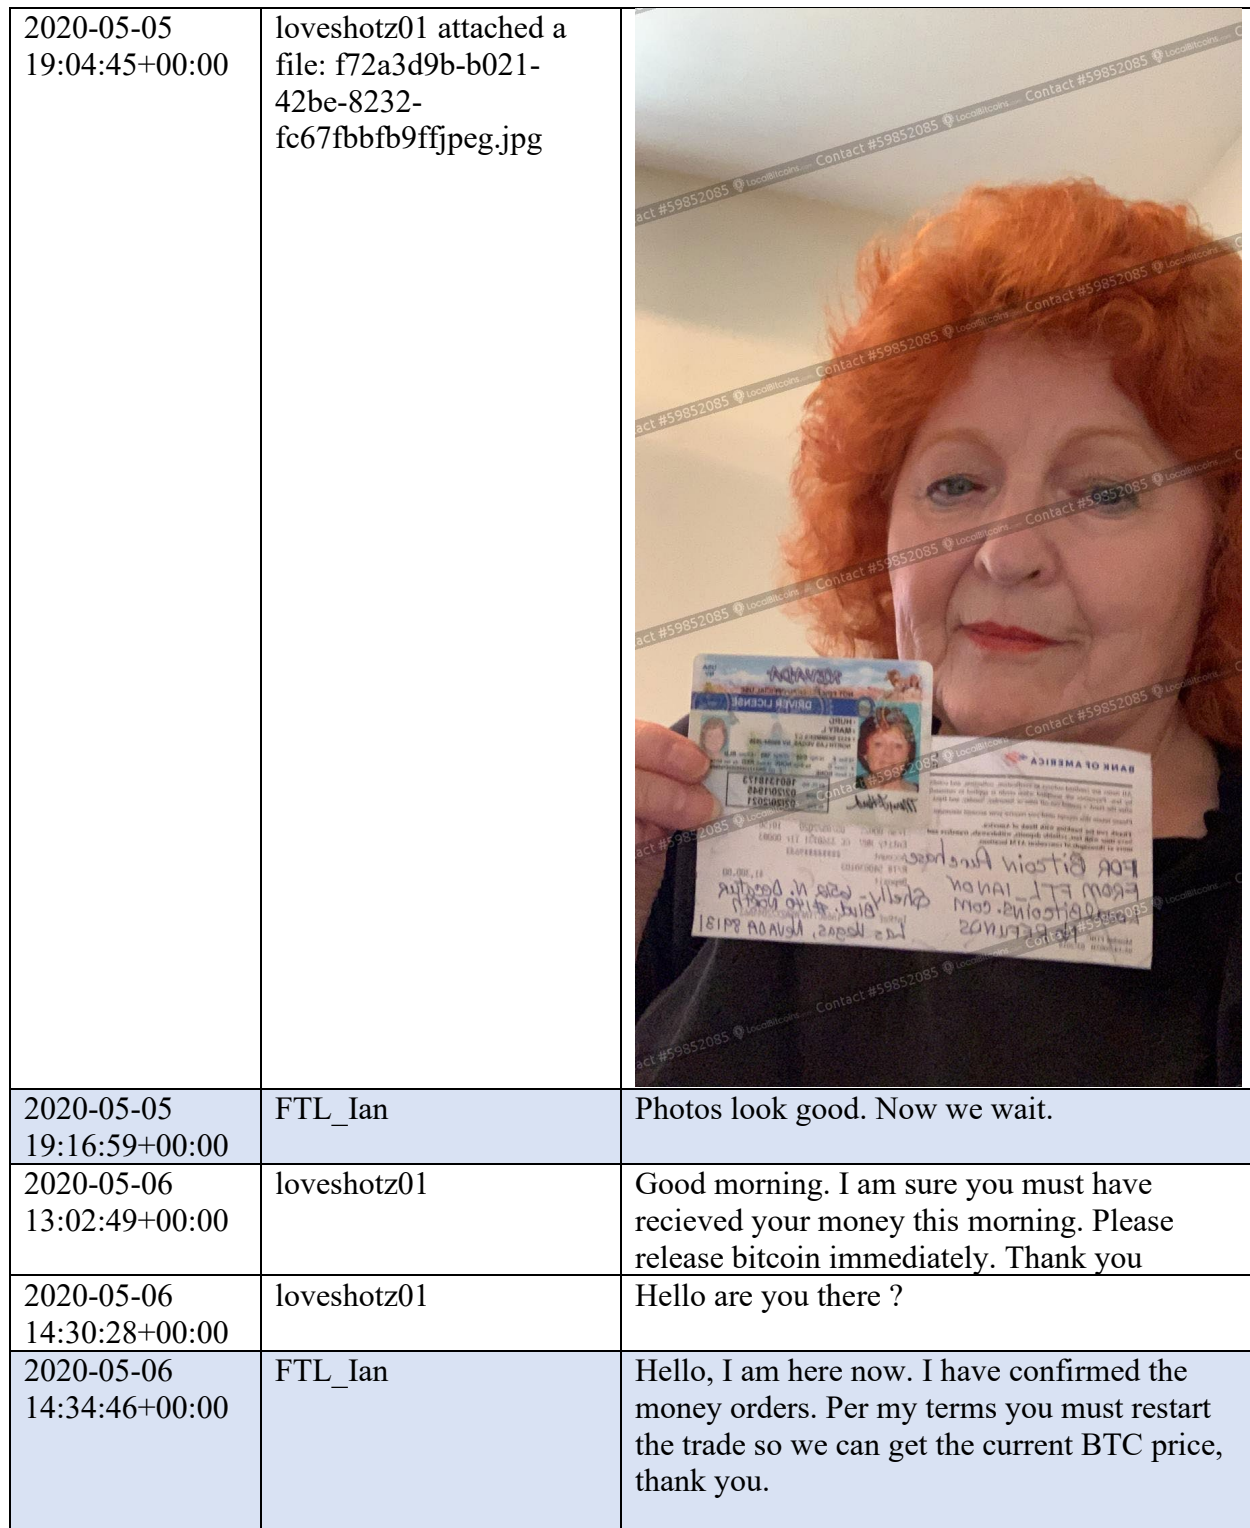 2020-05-05
19:04:45+00:00
loveshotz01 attached a
file: f72a3d9b-b021-
42be-8232-
fc67fbbfb9ffjpeg.jpg
Contact #59852085 LocalBitcoins.com
NEVADA
DRIVER LICENSE
HURD
MARY L
1601318173
02/20/1945
02/20/2021
BANK OF AMERICA
FOR Bitcoin Purchase
FROM FTL_IAN ON
LocalBitcoins.com
No REFUNDS
Shelly - 6592 N. Decatur
Blvd. #140 North
Las Vegas, Nevada 89131
2020-05-05
19:16:59+00:00
FTL_Ian
Photos look good. Now we wait.
2020-05-06
13:02:49+00:00
loveshotz01
Good morning. I am sure you must have
recieved your money this morning. Please
release bitcoin immediately. Thank you
2020-05-06
14:30:28+00:00
loveshotz01
Hello are you there ?
2020-05-06
14:34:46+00:00
FTL_Ian
Hello, I am here now. I have confirmed the
money orders. Per my terms you must restart
the trade so we can get the current BTC price,
thank you.